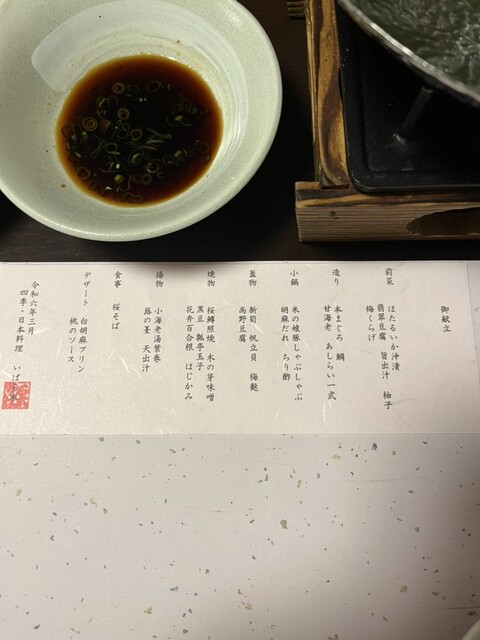 御献立
前菜
ほたるいか沖漬
翡翠豆腐 旨出汁 柚子
梅くらげ
造り
本まぐろ 鯛
甘海老 あしらい一式
小鍋
米の娘豚しゃぶしゃぶ
胡麻だれ ちり酢
蓋物
新筍 帆立貝 梅麩
高野豆腐
焼物
桜鱒照焼 木の芽味噌
黒豆 瓢亭玉子
花弁百合根 はじかみ
揚物
小海老湯葉巻
蕗の薹 天出汁
食事 桜そば
デザート 白胡麻プリン
桃のソース
令和六年三月
四季・日本料理 いば